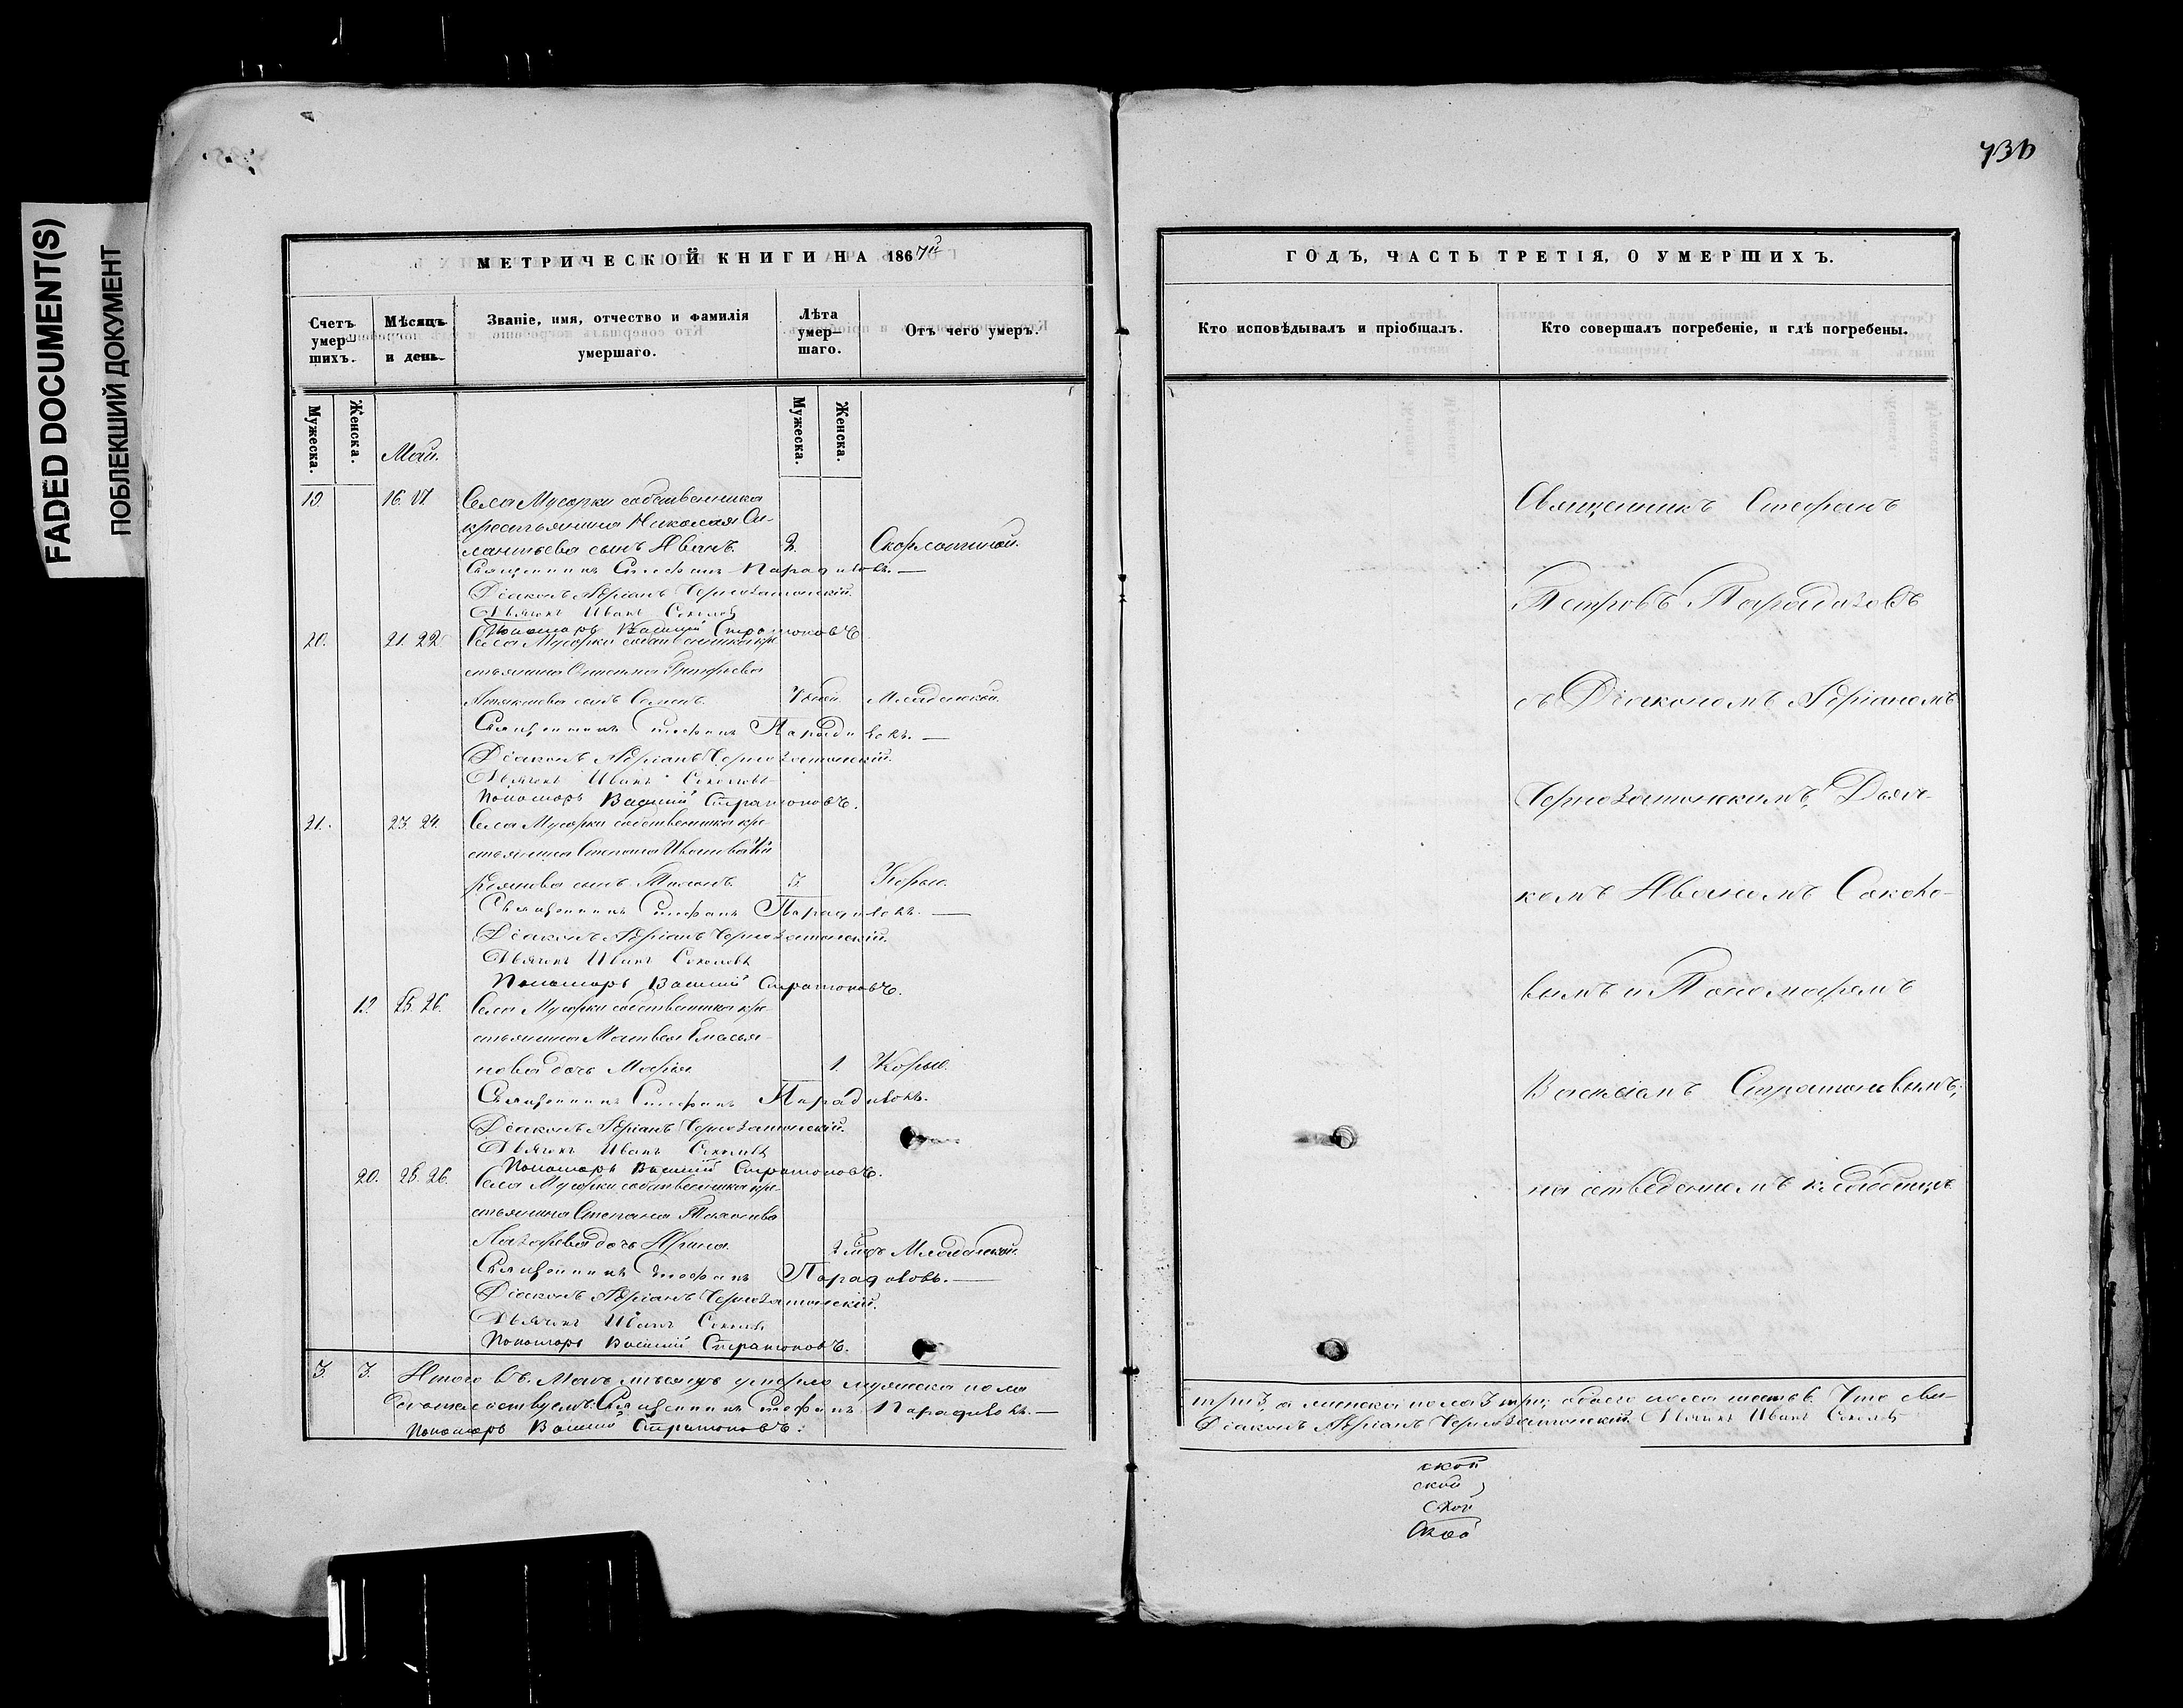 FADED DOCUMENT(S)
ПОБЛЕКШИЙ ДОКУМЕНТ
МЕТРИЧЕСКОЙ КНИГИ НА 1867й
Счетъ умер-шихъ.
Мѣсяцъ и день.
Званіе, имя, отчество и фамилія умершаго.
Лѣта умер-шаго.
Отъ чего умеръ.
Мужеска.
Женска.
Мужеска.
Женска.
Май.
19. 16. 17. Села Мусорки собственника
крестьянина Николая Си-
лантьева сынъ Иванъ. 2. Скорлатиной.
Священникъ Стефанъ Парадизовъ.—
Діаконъ Адріанъ Чернозатонскій.
Дьячекъ Иванъ Соколовъ
Пономарь Василій Стратоновъ
20. 21. 22. Села Мусорки собственника кре-
стьянина
сынъ Семенъ. 7 дней. Младенской.
Священникъ Стефанъ Парадизовъ.—
Діаконъ Адріанъ Чернозатонскій.
Дьячекъ Иванъ Соколовъ
Пономарь Василій Стратоновъ.
21. 23. 24. Села Мусорки собственника кре-
стьянина Степана
сынъ 3. Корью.
Священникъ Стефанъ Парадизовъ.—
Діаконъ Адріанъ Чернозатонскій.
Дьячекъ Иванъ Соколовъ
Пономарь Василій Стратоновъ.
19. 25. 26. Села Мусорки собственника кре-
стьянина Матвея Емелья-
нова дочь Марья 1. Корью.
Священникъ Стефанъ Парадизовъ.
Діаконъ Адріанъ Чернозатонскій.
Дьячекъ Иванъ Соколовъ
Пономарь Василій Стратоновъ.
20. 25. 26. Села Мусорки собственника кре-
стьянина Степана
Лазарева дочь Ирина. 2 Младенской.
Священникъ Стефанъ Парадизовъ.—
Діаконъ Адріанъ Чернозатонскій.
Дьячекъ Иванъ Соколовъ
Пономарь Василій Стратоновъ.
3. 3. Итого въ Маѣ мѣсяцѣ умерло мужеска пола
Священникъ Стефанъ Парадизовъ.—
Пономарь Василій Стратоновъ.
736
ГОДЪ, ЧАСТЬ ТРЕТІЯ, О УМЕРШИХЪ.
Кто исповѣдывалъ и пріобщалъ.
Кто совершалъ погребеніе, и гдѣ погребены.
Священникъ Стефанъ
Петровъ Парадизовъ
съ Діакономъ Адріаномъ
Чернозатонскимъ, Дьяч-
комъ Иваномъ Соколо-
вымъ и Пономаремъ
Василіемъ Стратоновымъ,
на отведенномъ кладбищѣ
три 3, а женска пола 3 три; обоего пола шесть 6. Что сви-
Діаконъ Адріанъ Чернозатонскій. Дьячекъ Иванъ Соколовъ
ской
ской
ской
ской